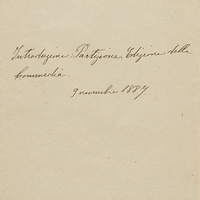 Introduzione. Partizione. Edizione della
Commedia.
9 novembre 1887